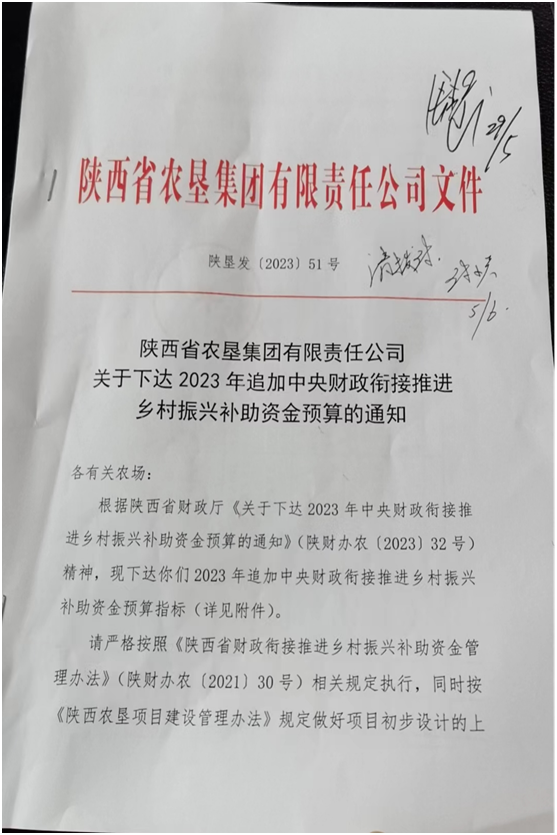 29/5
陕西省农垦集团有限责任公司文件
陕垦发〔2023〕51号
5/6.
陕西省农垦集团有限责任公司
关于下达 2023 年追加中央财政衔接推进
乡村振兴补助资金预算的通知
各有关农场：
根据陕西省财政厅《关于下达 2023 年中央财政衔接推
进乡村振兴补助资金预算的通知》（陕财办农〔2023〕32 号）
精神，现下达你们 2023 年追加中央财政衔接推进乡村振兴
补助资金预算指标（详见附件）。
请严格按照《陕西省财政衔接推进乡村振兴补助资金管
理办法》（陕财办农〔2021〕30 号）相关规定执行，同时按
《陕西农垦项目建设管理办法》规定做好项目初步设计的上